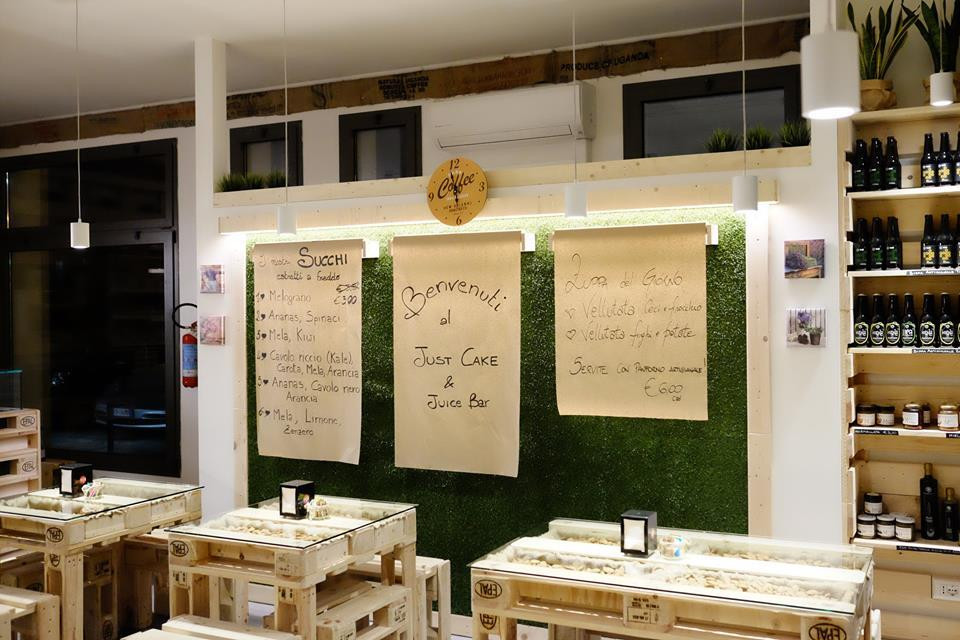 PRODUCE OF UGANDA
12
9
3
6
Coffee
NEW ORLEANS
I nostri SUCCHI
estratti a freddo
€3.00
1 Melograno
2 Ananas, Spinaci
3 Mela, Kiwi
4 Cavolo riccio (Kale),
Carota, Mela, Arancia
5 Ananas, Cavolo nero
Arancia
6 Mela, Limone,
Zenzero
Benvenuti
al
JUST CAKE
&
JUICE BAR
Zuppa del Giorno
Vellutata Ceci e finocchio
Vellutata funghi e patate
SERVITE CON PANFORNO ARTIGIANALE!
€ 6.00
EPAL
EPAL
EPAL
EPAL
EPAL